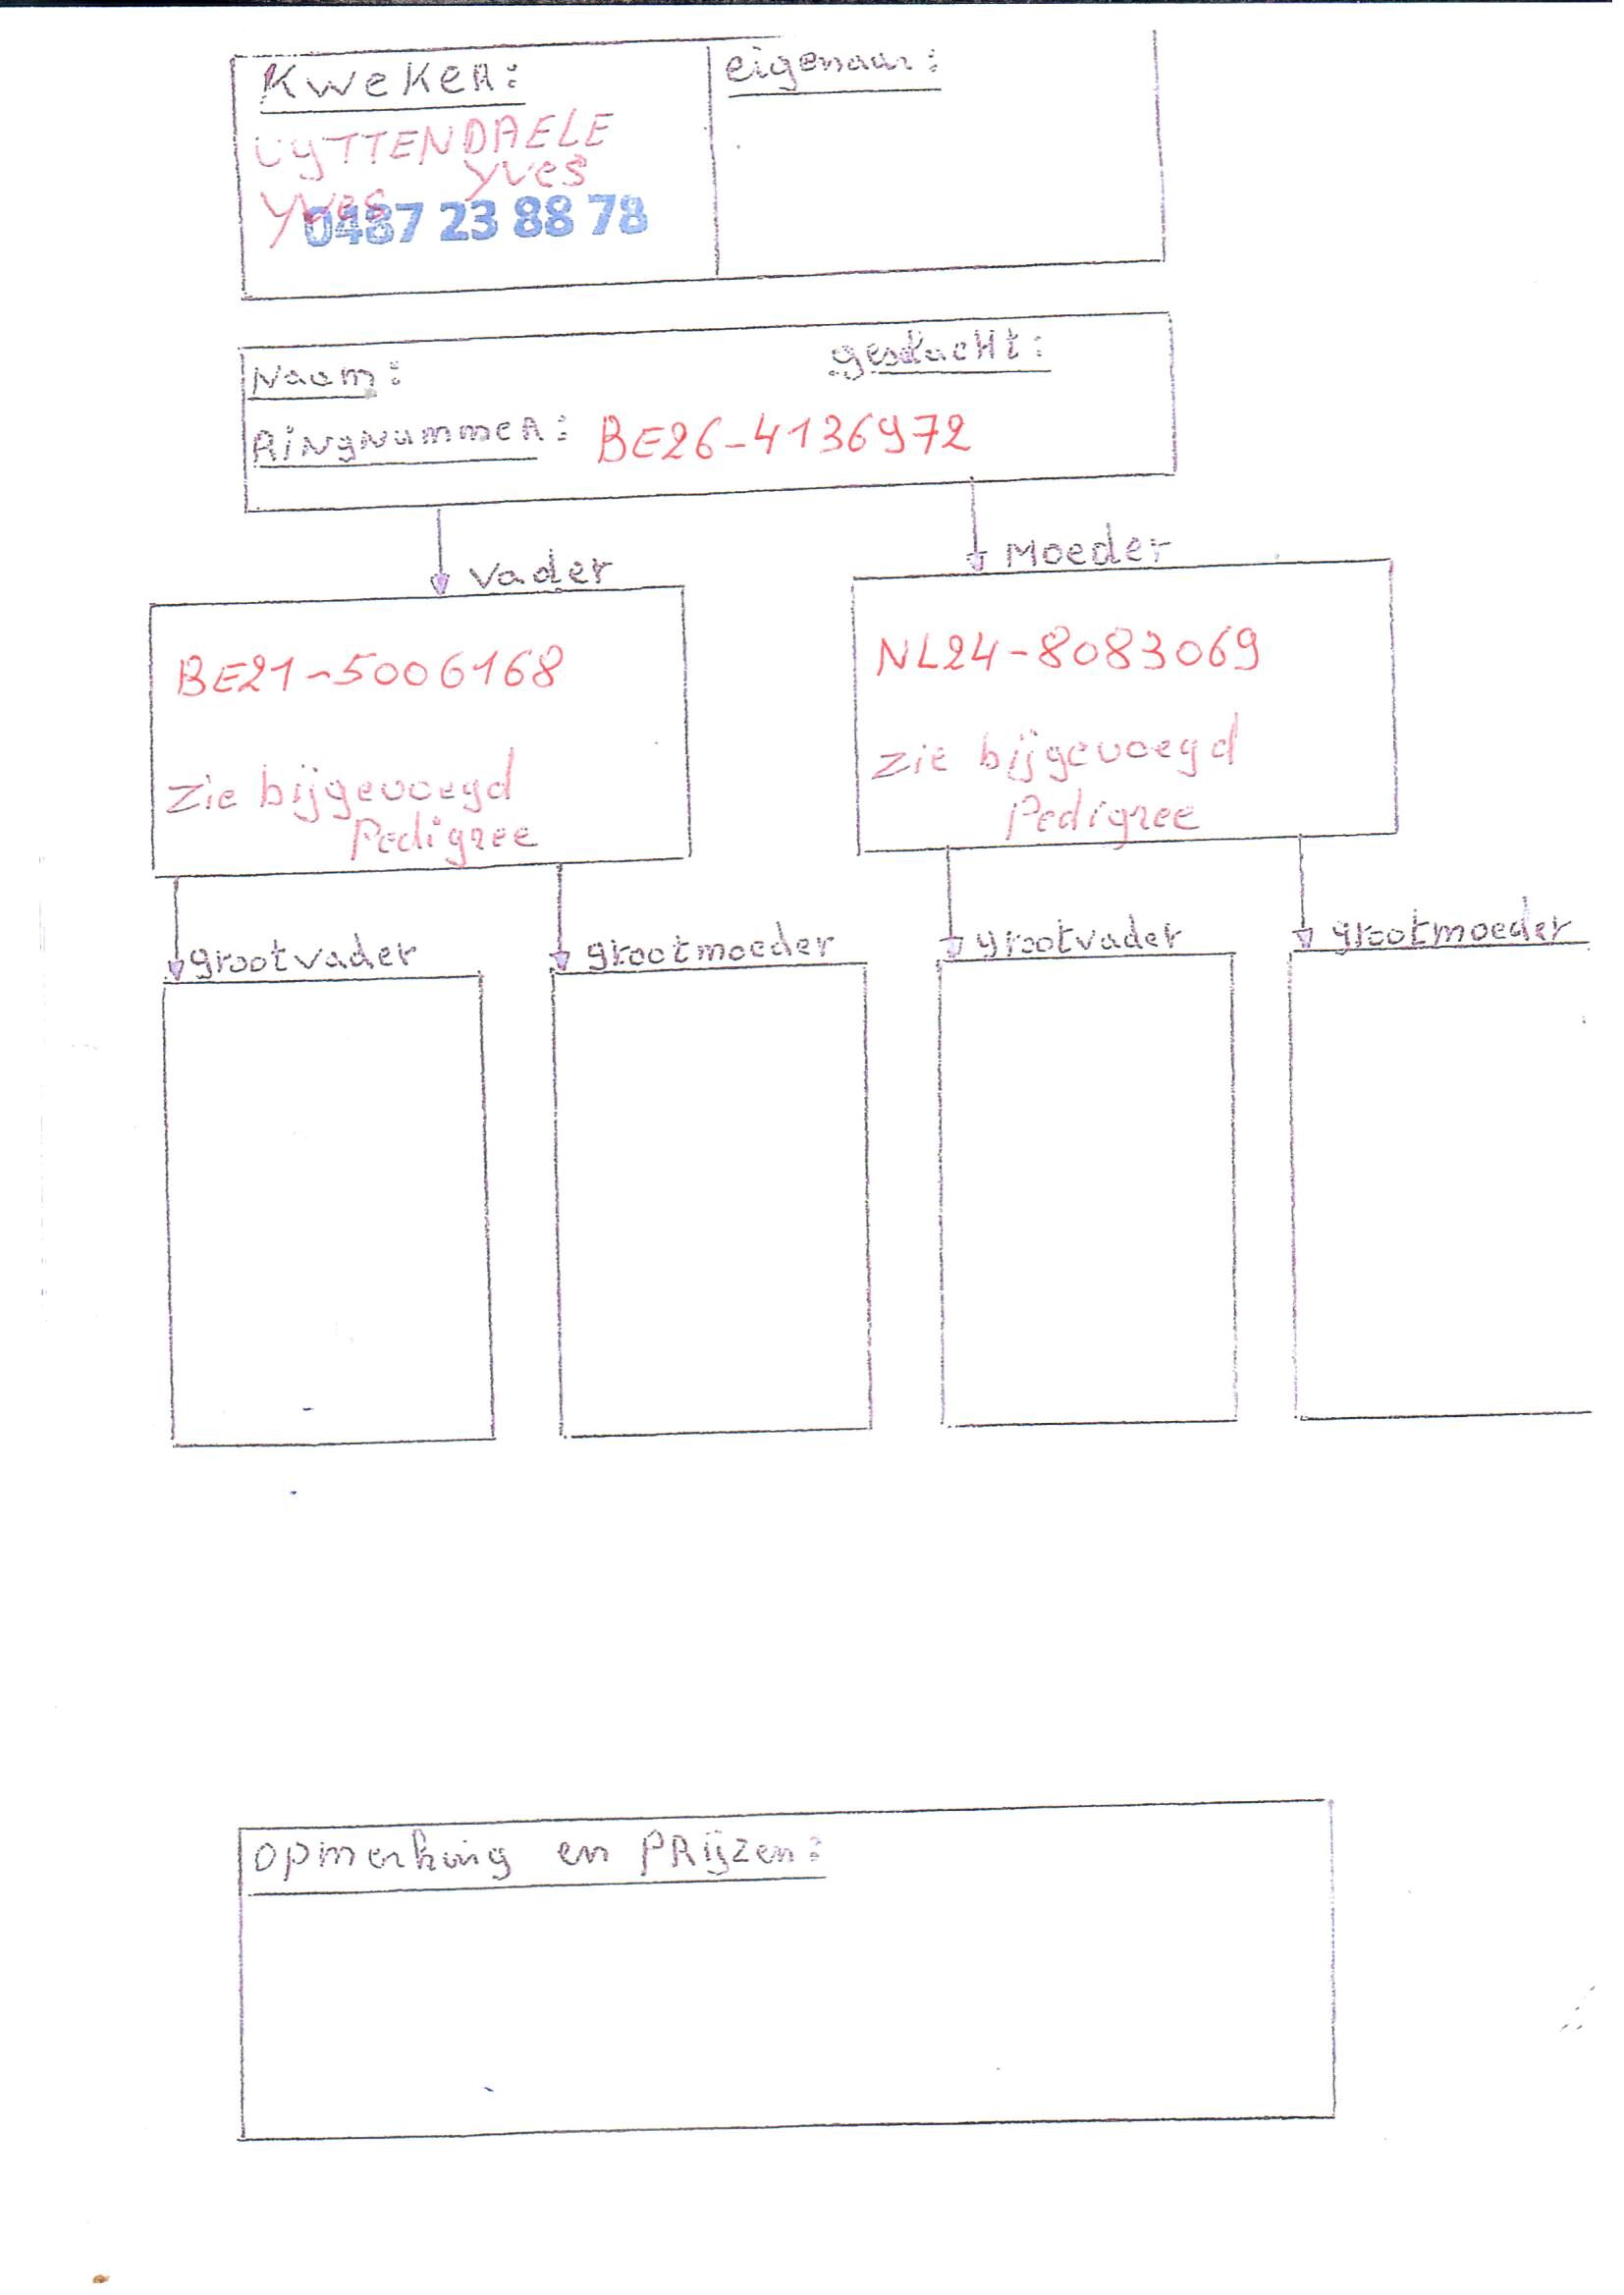 Kweker:
eigenaar:
UYTTENDAELE
Yves
Yves
0487 23 88 78
Naam:
geslacht:
Ringnummer: BE26-4136972
Vader
Moeder
BE21-5006168
Zie bijgevoegd
Pedigree
NL24-8083069
Zie bijgevoegd
Pedigree
grootvader
grootmoeder
grootvader
grootmoeder
opmerking en PRijzen: